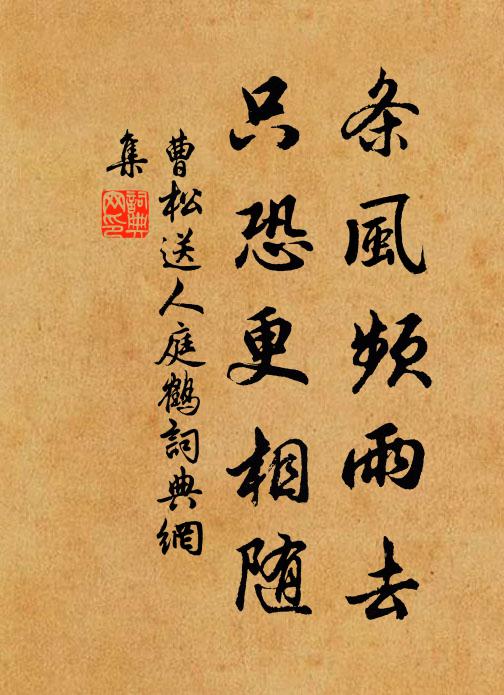 条風頻雨去
只恐更相随
曹松送人庭鶴詞典網
集
詞典
网印